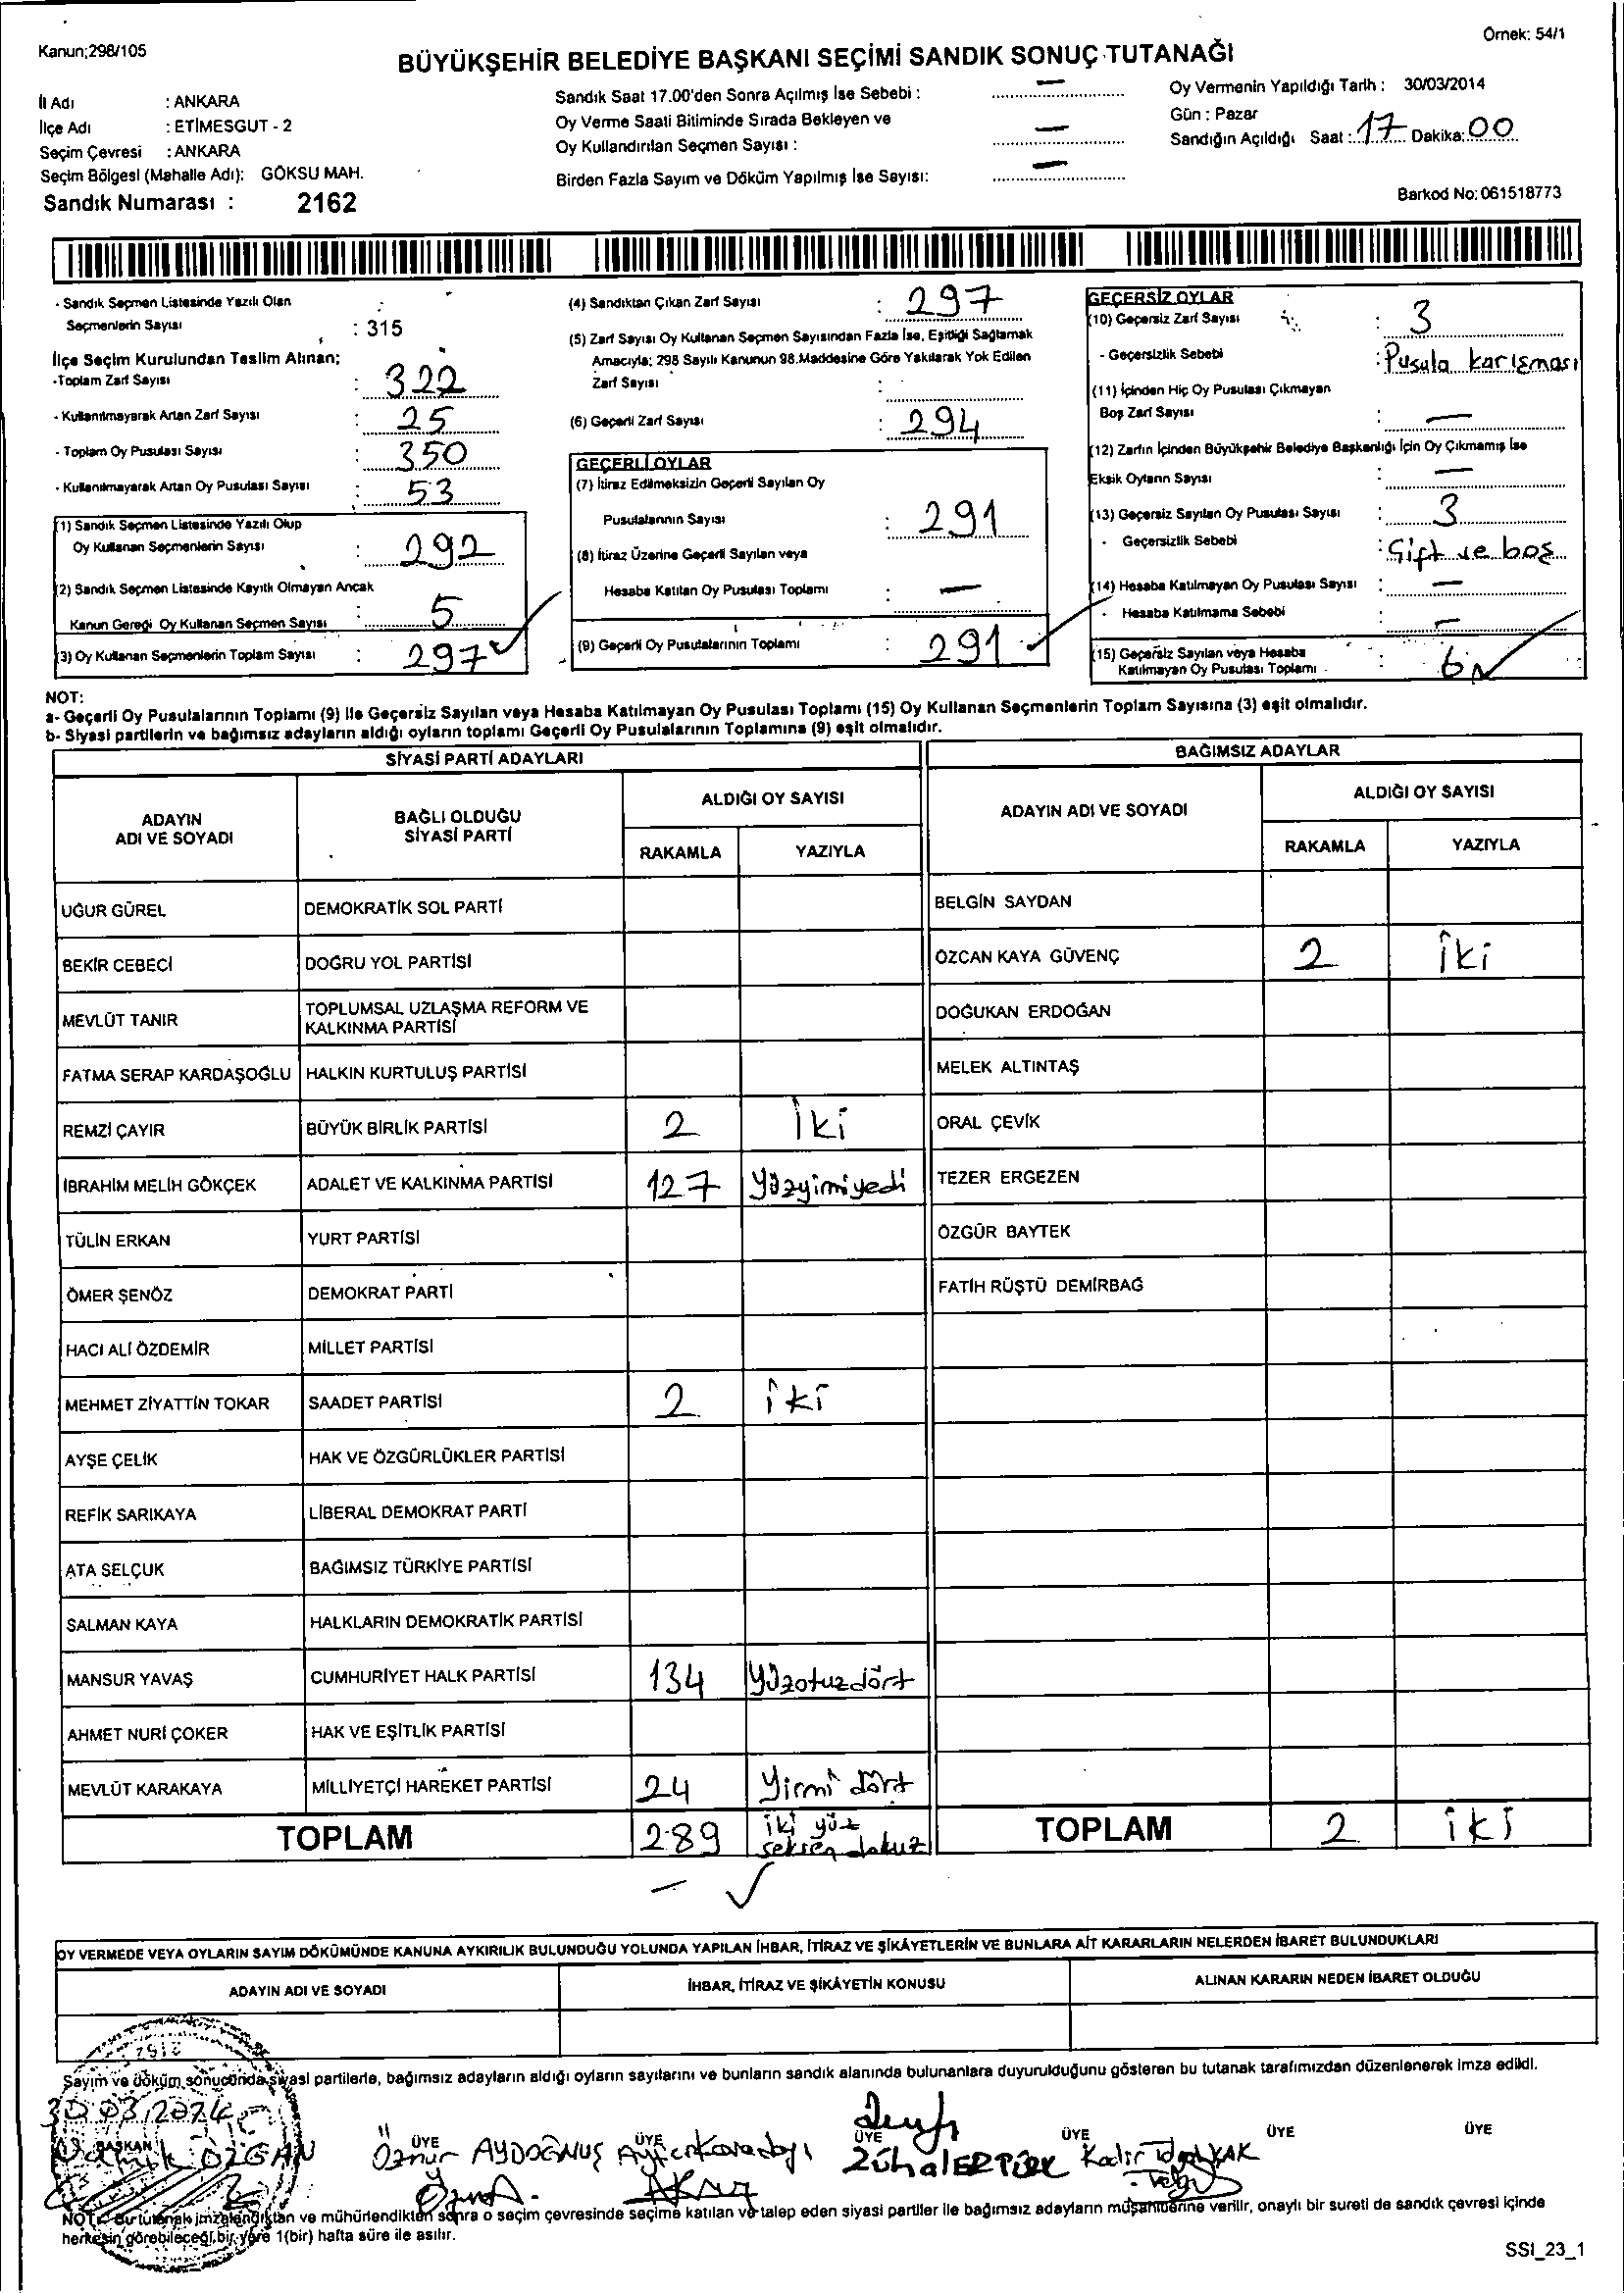 Kanun;298/105
Örnek: 54/1
BÜYÜKŞEHİR BELEDİYE BAŞKANI SEÇİMİ SANDIK SONUÇ TUTANAĞI
İl Adı : ANKARA
İlçe Adı : ETİMESGUT - 2
Seçim Çevresi : ANKARA
Seçim Bölgesi (Mahalle Adı): GÖKSU MAH.
Sandık Numarası : 2162
Sandık Saat 17.00'den Sonra Açılmış İse Sebebi : —
Oy Verme Saati Bitiminde Sırada Bekleyen ve
Oy Kullandırılan Seçmen Sayısı : —
Birden Fazla Sayım ve Döküm Yapılmış İse Sayısı: —
Oy Vermenin Yapıldığı Tarih : 30/03/2014
Gün : Pazar
Sandığın Açıldığı Saat : 17 Dakika: 00
Barkod No: 061518773
- Sandık Seçmen Listesinde Yazılı Olan
Seçmenlerin Sayısı : 315
İlçe Seçim Kurulundan Teslim Alınan;
-Toplam Zarf Sayısı : 322
- Kullanılmayarak Artan Zarf Sayısı : 25
- Toplam Oy Pusulası Sayısı : 350
- Kullanılmayarak Artan Oy Pusulası Sayısı : 53
(1) Sandık Seçmen Listesinde Yazılı Olup
Oy Kullanan Seçmenlerin Sayısı : 292
(2) Sandık Seçmen Listesinde Kayıtlı Olmayan Ancak
Kanun Gereği Oy Kullanan Seçmen Sayısı : 5
(3) Oy Kullanan Seçmenlerin Toplam Sayısı : 297
(4) Sandıktan Çıkan Zarf Sayısı : 297
(5) Zarf Sayısı Oy Kullanan Seçmen Sayısından Fazla İse, Eşitliği Sağlamak
Amacıyla; 298 Sayılı Kanunun 98.Maddesine Göre Yakılarak Yok Edilen
Zarf Sayısı :
(6) Geçerli Zarf Sayısı : 294
GEÇERLİ OYLAR
(7) İtiraz Edilmeksizin Geçerli Sayılan Oy
Pusulalarının Sayısı : 291
(8) İtiraz Üzerine Geçerli Sayılan veya
Hesaba Katılan Oy Pusulası Toplamı : —
(9) Geçerli Oy Pusulalarının Toplamı : 291
GEÇERSİZ OYLAR
(10) Geçersiz Zarf Sayısı : 3
- Geçersizlik Sebebi : Pusula karışması
(11) İçinden Hiç Oy Pusulası Çıkmayan
Boş Zarf Sayısı : —
(12) Zarfın İçinden Büyükşehir Belediye Başkanlığı İçin Oy Çıkmamış İse
Eksik Oyların Sayısı : —
(13) Geçersiz Sayılan Oy Pusulası Sayısı : 3
- Geçersizlik Sebebi : Çift ve boş
(14) Hesaba Katılmayan Oy Pusulası Sayısı : —
- Hesaba Katılmama Sebebi : —
(15) Geçersiz Sayılan veya Hesaba
Katılmayan Oy Pusulası Toplamı : 6
NOT:
a- Geçerli Oy Pusulalarının Toplamı (9) ile Geçersiz Sayılan veya Hesaba Katılmayan Oy Pusulası Toplamı (15) Oy Kullanan Seçmenlerin Toplam Sayısına (3) eşit olmalıdır.
b- Siyasi partilerin ve bağımsız adayların aldığı oyların toplamı Geçerli Oy Pusulalarının Toplamına (9) eşit olmalıdır.
SİYASİ PARTİ ADAYLARI
ADAYIN
ADI VE SOYADI
BAĞLI OLDUĞU
SİYASİ PARTİ
ALDIĞI OY SAYISI
RAKAMLA YAZIYLA
UĞUR GÜREL DEMOKRATİK SOL PARTİ
BEKİR CEBECİ DOĞRU YOL PARTİSİ
MEVLÜT TANIR TOPLUMSAL UZLAŞMA REFORM VE
KALKINMA PARTİSİ
FATMA SERAP KARDAŞOĞLU HALKIN KURTULUŞ PARTİSİ
REMZİ ÇAYIR BÜYÜK BİRLİK PARTİSİ 2 İki
İBRAHİM MELİH GÖKÇEK ADALET VE KALKINMA PARTİSİ 127 Yüzyimiyedi
TÜLİN ERKAN YURT PARTİSİ
ÖMER ŞENÖZ DEMOKRAT PARTİ
HACI ALİ ÖZDEMİR MİLLET PARTİSİ
MEHMET ZİYATTİN TOKAR SAADET PARTİSİ 2 iki
AYŞE ÇELİK HAK VE ÖZGÜRLÜKLER PARTİSİ
REFİK SARIKAYA LİBERAL DEMOKRAT PARTİ
ATA SELÇUK BAĞIMSIZ TÜRKİYE PARTİSİ
SALMAN KAYA HALKLARIN DEMOKRATİK PARTİSİ
MANSUR YAVAŞ CUMHURİYET HALK PARTİSİ 134 Yüzotuzdört
AHMET NURİ ÇOKER HAK VE EŞİTLİK PARTİSİ
MEVLÜT KARAKAYA MİLLİYETÇİ HAREKET PARTİSİ 24 Yirmi dört
TOPLAM 289 iki yüz
seksen dokuz
BAĞIMSIZ ADAYLAR
ADAYIN ADI VE SOYADI
ALDIĞI OY SAYISI
RAKAMLA YAZIYLA
BELGİN SAYDAN
ÖZCAN KAYA GÜVENÇ 2 İki
DOĞUKAN ERDOĞAN
MELEK ALTINTAŞ
ORAL ÇEVİK
TEZER ERGEZEN
ÖZGÜR BAYTEK
FATİH RÜŞTÜ DEMİRBAĞ
TOPLAM 2 iki
OY VERMEDE VEYA OYLARIN SAYIM DÖKÜMÜNDE KANUNA AYKIRILIK BULUNDUĞU YOLUNDA YAPILAN İHBAR, İTİRAZ VE ŞİKÂYETLERİN VE BUNLARA AİT KARARLARIN NELERDEN İBARET BULUNDUKLARI
ADAYIN ADI VE SOYADI İHBAR, İTİRAZ VE ŞİKÂYETİN KONUSU ALINAN KARARIN NEDEN İBARET OLDUĞU
2162
Sayım ve döküm sonucunda siyasi partilerle, bağımsız adayların aldığı oyların sayılarını ve bunların sandık alanında bulunanlara duyurulduğunu gösteren bu tutanak tarafımızdan düzenlenerek imza edildi.
30.03.2014
BAŞKAN ÜYE ÜYE ÜYE ÜYE ÜYE ÜYE
ÖZGAN Öznur AYDOĞMUŞ Zühal ERTÜRK Kadir
NOT: Bu tutanak imzalandıktan ve mühürlendikten sonra o seçim çevresinde seçime katılan ve talep eden siyasi partiler ile bağımsız adayların müşahitlerine verilir, onaylı bir sureti de sandık çevresi içinde
herkesin görebileceği bir yere 1(bir) hafta süre ile asılır.
SSI_23_1